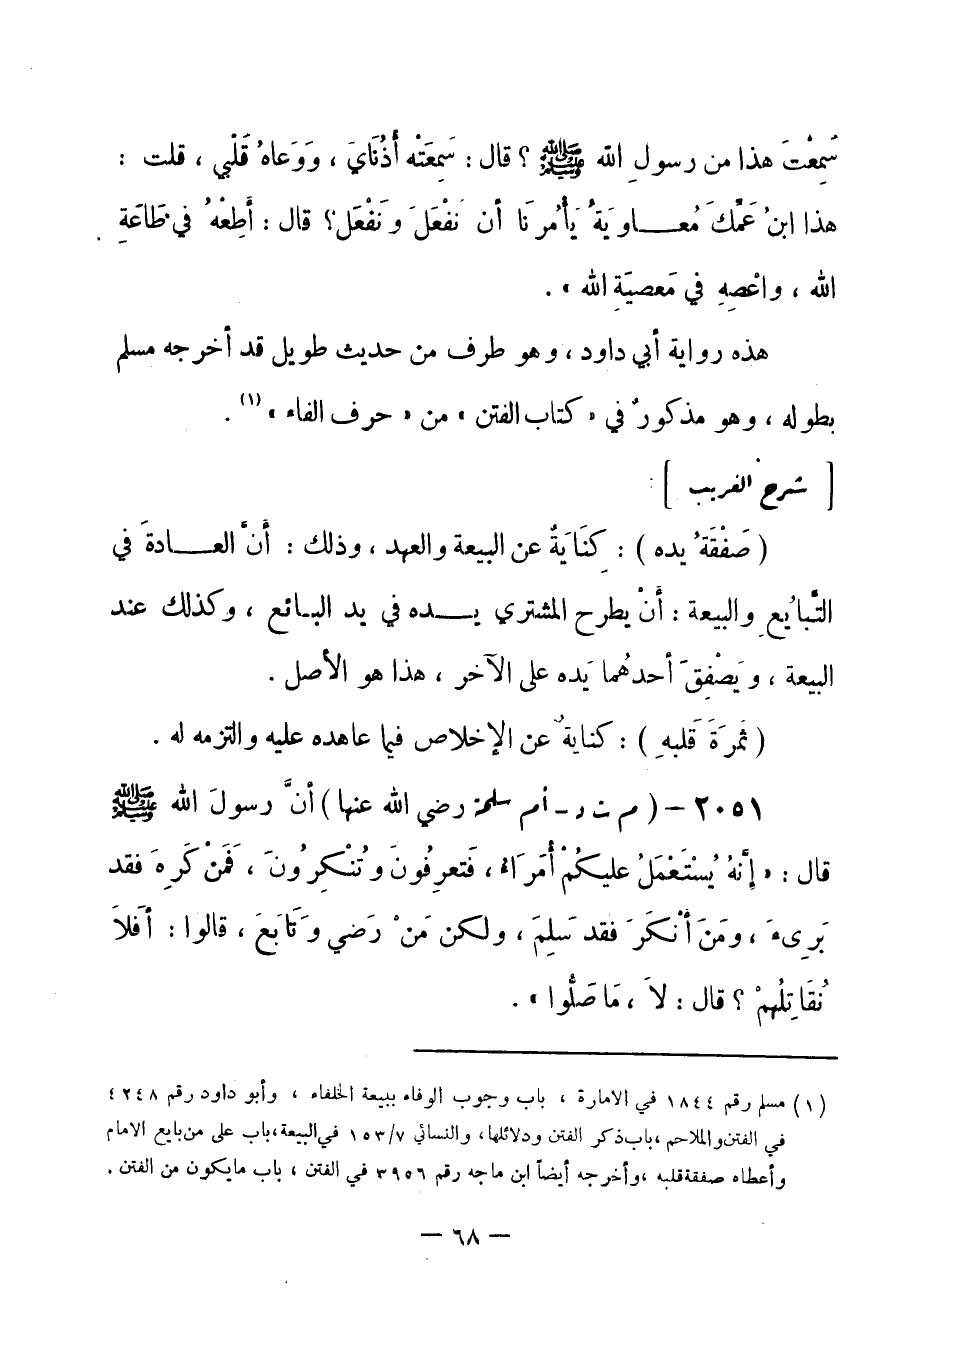 سَمِعْتَ هذا من رسولِ الله ﷺ ؟ قال : سَمِعَتْه أُذُنَايَ ، وَوَعاهُ قَلْبي ، قلت :
هذا ابنُ عَمِّكَ مُعـــاويَةُ يَأْمُرنَا أن نَفْعَلَ ونَفْعَل ؟ قال : أَطِعْهُ في طَاعَةِ
الله ، واعْصِهِ في مَعصيَةِ الله » .
هذه رواية أبي داود ، وهو طرف من حديث طويل قد أخرجه مسلم
بطوله ، وهو مذكورٌ في « كتاب الفتن » من « حرف الفاء » (١) .
[ شرح الغريب ] :
( صَفْقَةُ يده ) : كِنَايَةٌ عن البيعة والعهد ، وذلك : أنَّ العـــادةَ في
التَّبايُعِ والبيعة : أنْ يطرح المشتري يـــده في يد البائع ، وكذلك عند
البيعة ، ويَصْفِقَ أحدهُما يَده على الآخر ، هذا هو الأصل .
( ثمرَةَ قَلبهِ ) : كنايةٌ عن الإخلاص فيما عاهده عليه والتزمه له .
٢٠٥١ – ( م ت د - أم سلمة رضي الله عنها ) أنَّ رسولَ الله ﷺ
قال : « إنَّهُ يُسْتَعْمَلُ عليكُمْ أُمَرَاءُ ، فَتعرِفُونَ وتُنْكِرُونَ ، فَمَنْ كَرِهَ فقد
بَرِىءَ ، ومَنَ أَنْكَرَ فقد سَلِمَ ، ولكن مَنْ رَضي وَتَابَعَ ، قالوا : أَفَلاَ
نُقَاتِلُهمْ ؟ قال : لاَ ، مَا صَلُّوا » .
(١) مسلم رقم ١٨٤٤ في الامارة ، باب وجوب الوفاء ببيعة الخلفاء ، وأبو داود رقم ٤٢٤٨
في الفتن والملاحم ، باب ذكر الفتن ودلائلها ، والنسائي ١٥٣/٧ في البيعة ، باب على من بايع الامام
وأعطاه صفقة قلبه ، وأخرجه أيضاً ابن ماجه رقم ٣٩٥٦ في الفتن ، باب ما يكون من الفتن .
– ٦٨ –